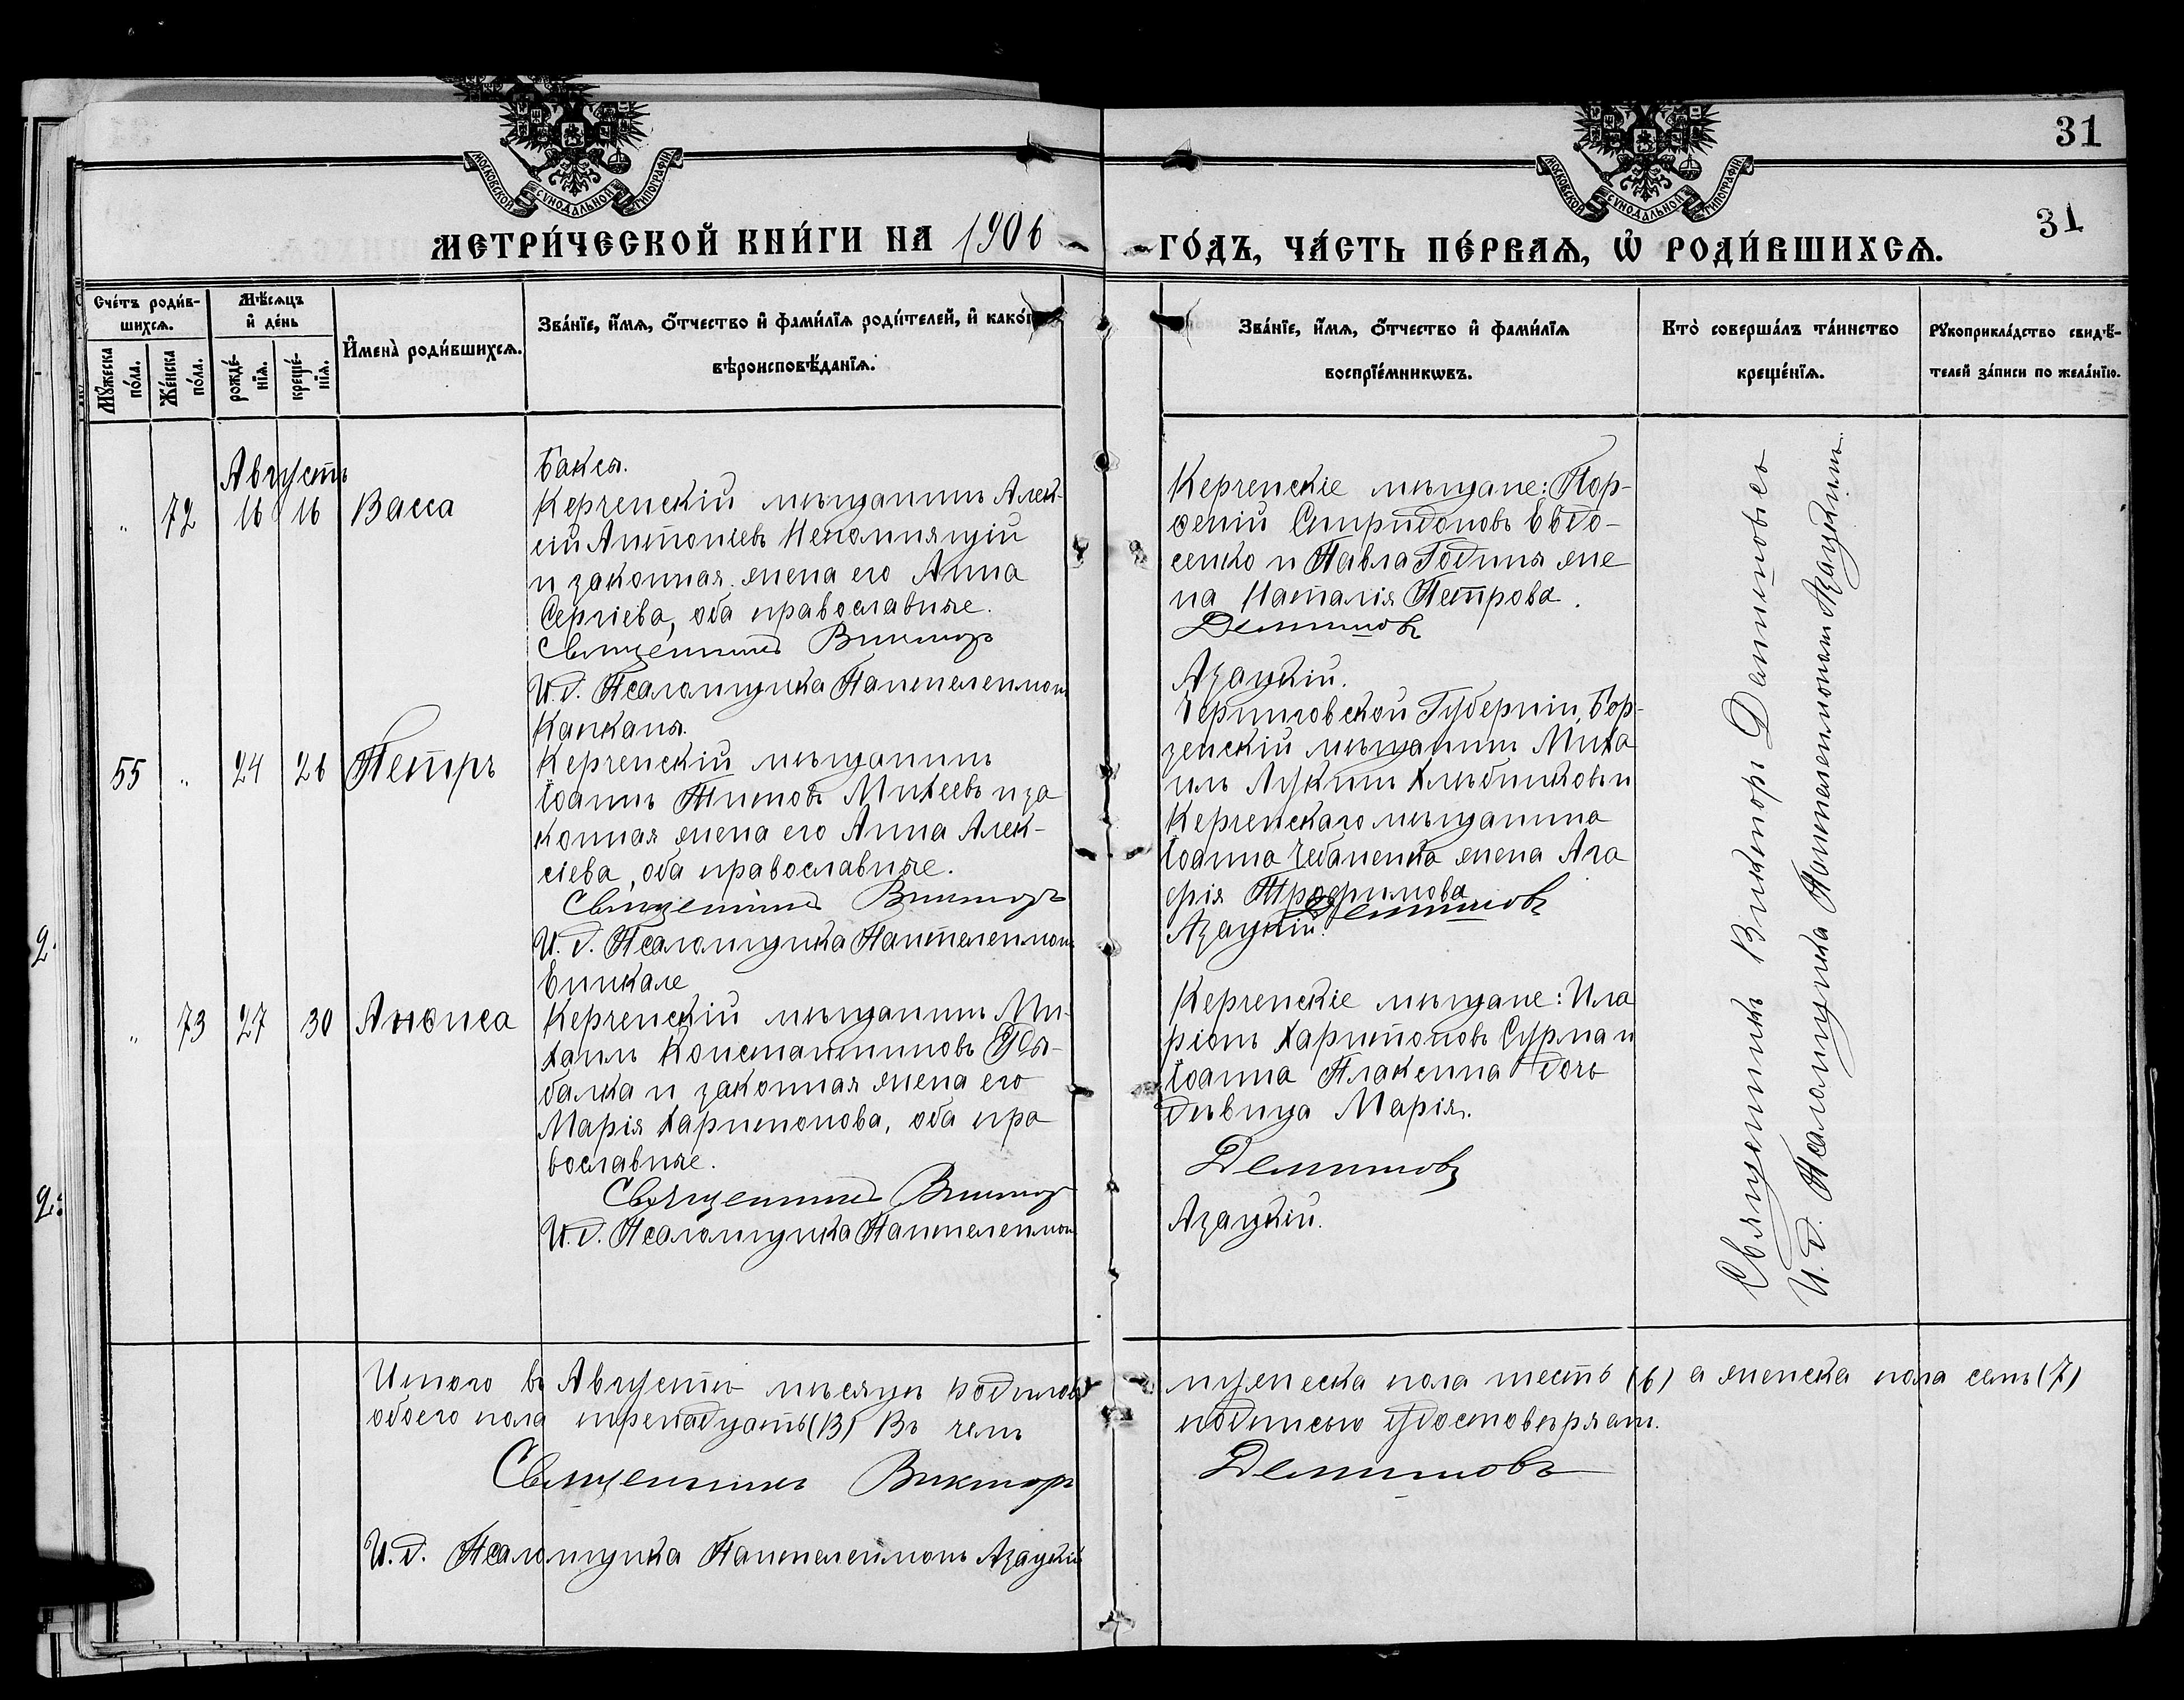 31
31
МОСКОВСКОЙ СѴНОДАЛЬНОЙ ТИПОГРАФІИ
МОСКОВСКОЙ СѴНОДАЛЬНОЙ ТИПОГРАФІИ
МЕТРИ́ЧЕСКОЙ КНИ́ГИ НА 1906
ГО́ДЪ, ЧА́СТЬ ПЕ́РВАЯ, Ѡ҆ РОДИ́ВШИХСЯ.
Сче́тъ роди́в-
шихся.
Му́жеска
по́ла.
Же́нска
по́ла.
Мѣ́сяцъ
и҆ де́нь
рожде́-
нїя.
креще́-
нїя.
И҆мена̀ роди́вшихся.
Зва́нїе, и҆́мя, ѻ҆́тчество и҆ фами́лїя роди́телей, и҆ како́гѡ
вѣроисповѣ́данїя.
Зва́нїе, и҆́мя, ѻ҆́тчество и҆ фами́лїя
воспрїе́мникѡвъ.
Кто̀ соверша́лъ та́инство
креще́нїя.
Рꙋкоприкла́дство свидѣ́-
телей за́писи по жела́нїю.
Августъ
" 72 16 16 Васса
Бакся.
Керченскій мѣщанинъ Алек-
сій Антоніевъ Непомнящій
и законная жена его Анна
Сергіева, оба православные.
Священникъ Викторъ
И. д. Псаломщика Пантелеимонъ
Керченскіе мѣщане: Пор-
фений Спиридоновъ Евдо-
сенко и Павла Година же
на Наталія Петрова.
Демяновъ
Азацкій.
55 " 24 26 Петръ
Капканы.
Керченскій мѣщанинъ
Іоаннъ Титовъ Михеевъ и за
конная жена его Анна Алек-
сіева, оба православные.
Священникъ Викторъ
И. д. Псаломщика Пантелеимонъ
Черниговской Губерніи, Бор-
зенскій мѣщанинъ Миха
илъ Лукинъ Хлѣбниковъ и
Керченскаго мѣщанина
Іоанна Чебаненка жена Ага
фія Трофимова
Демяновъ
Азацкій.
" 73 27 30 Анфиса
Еникале
Керченскій мѣщанинъ Ми-
хаилъ Константиновъ Цы-
балка и законная жена его
Марія Харитонова, оба пра
вославные.
Священникъ Викторъ
И. д. Псаломщика Пантелеимонъ
Керченскіе мѣщане: Ила
ріонъ Харитоновъ Сурма и
Іоанна Плаксина дочь
дѣвица Марія.
Демяновъ
Азацкій.
Священникъ Викторъ Демяновъ
И. д. Псаломщика Пантелеимонъ Азацкій
Итого въ Августѣ мѣсяцѣ родилось
мужеска пола шесть (6) а женска пола семь (7)
обоего пола тринадцать (13) Въ чемъ
подписью удостовѣряемъ.
Священникъ Викторъ
Демяновъ
И. д. Псаломщика Пантелеимонъ Азацкій